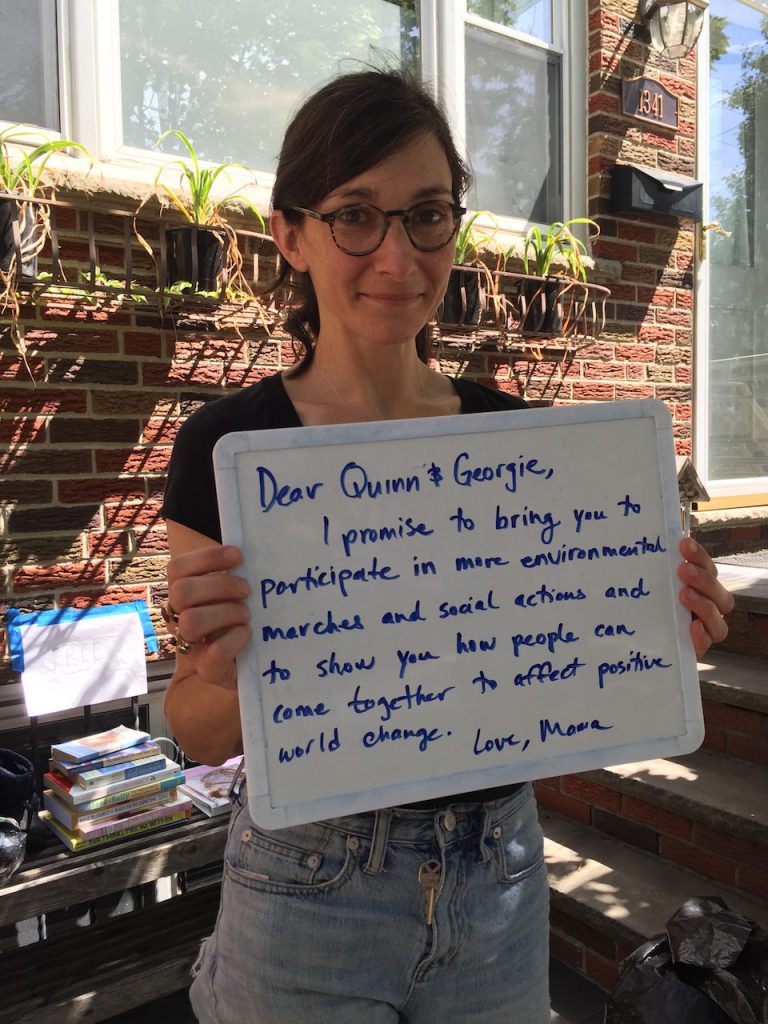 1341
Dear Quinn & Georgie,
I promise to bring you to
participate in more environmental
marches and social actions and
to show you how people can
come together to affect positive
world change. Love, Mama
FREE
BIRTHING FROM WITHIN